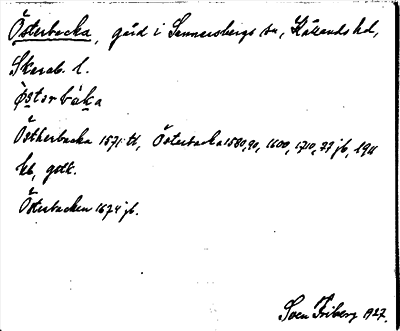 Österbacka, gård i Sunnersbergs sn, Kållands hd,
Skarab. l.
östərbáka
Östherbacka 1571 tl, Österbacka 1580, 90, 1600, 1710, 77 jb, 1911
kb, godk.
Österbacken 1674 jb.
Sven Friberg 1927.